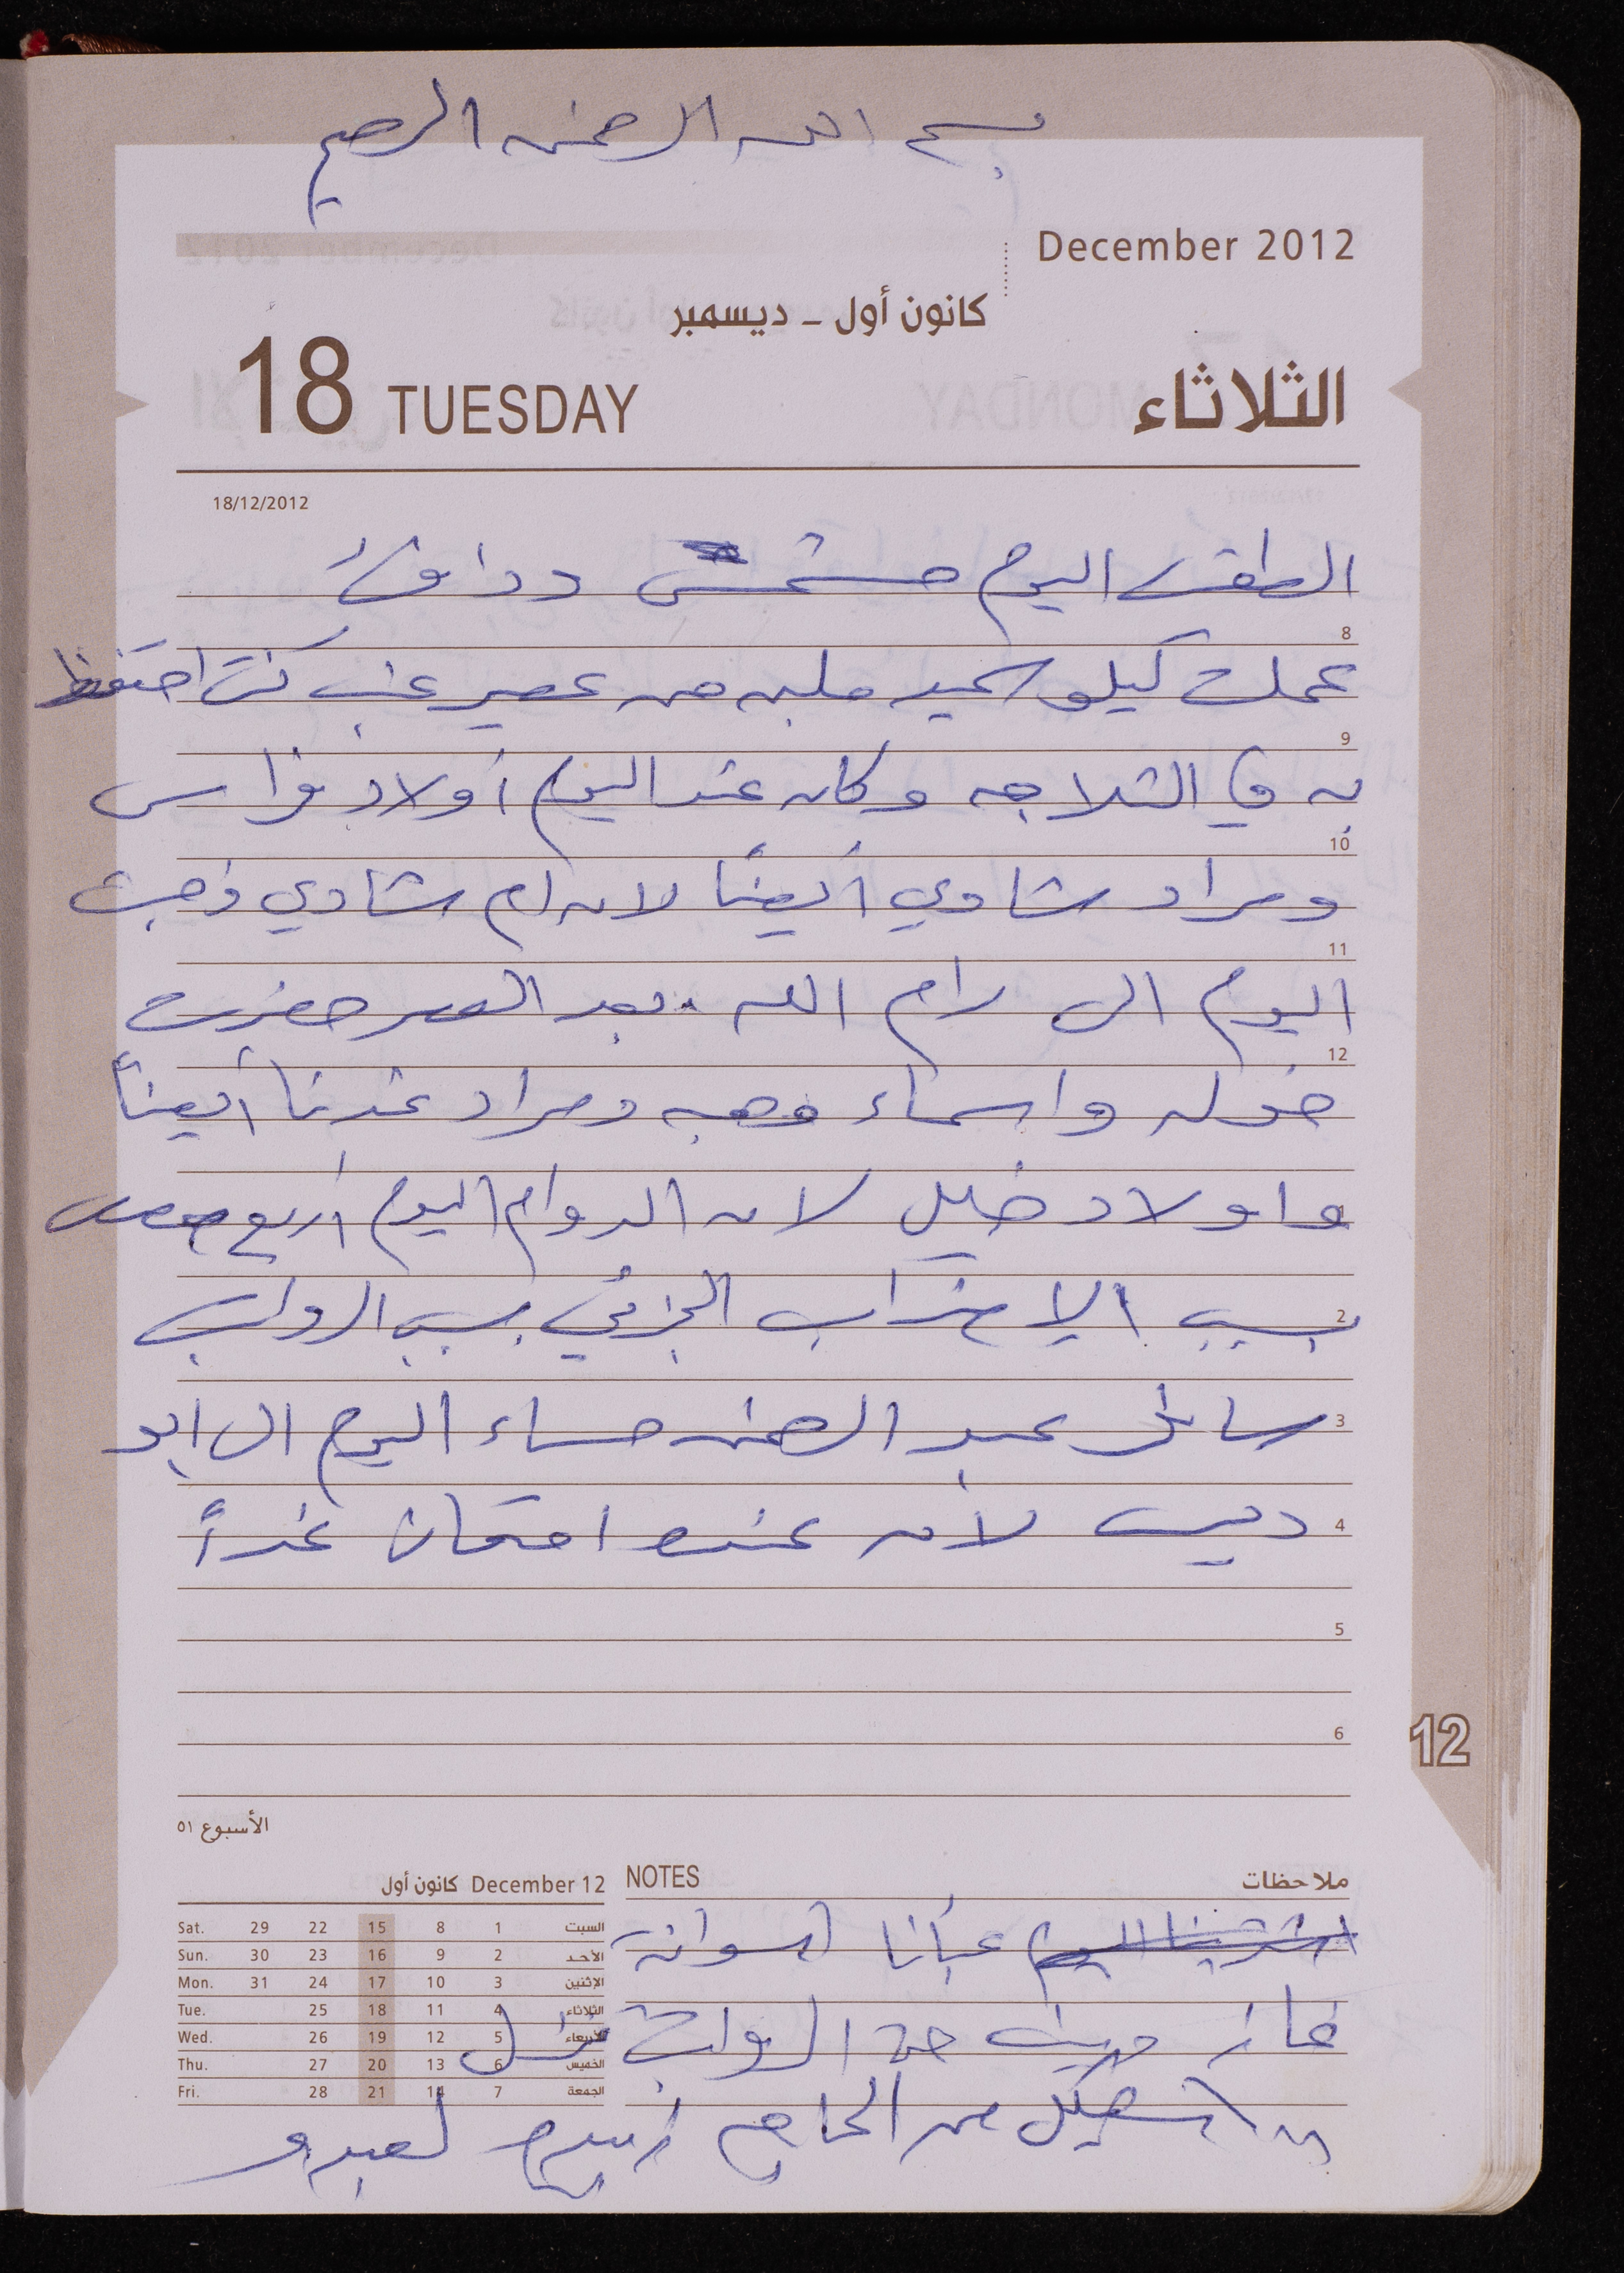 بسم الله الرحمن الرحيم
December 2012
كانون أول - ديسمبر
18 TUESDAY الثلاثاء
18/12/2012
الطقس اليوم مشمس ودافئ
8
عملت كيلو سميد ملبن من عصير عنب كنت احتفظ
9
به في الثلاجه وكان عند اليوم أولاد فراس
10
ومراد شادي أيضاً لان ام شادي ذهبت
11
اليوم الى رام الله بعد العصر حضرت
12
خوله واسماء وهبه ومراد عندنا أيضاً
واولاد خليل لان الدوام اليوم اربع حصص
2
بسبب الإضراب الجزئي بسبب الرواتب
3
سافر عبد الرحمن مساء اليوم الى ابو
4
ديس لأن عنده امتحان غداً
5
6
12
الأسبوع ٥١
December 12 كانون أول
السبت 1 8 15 22 29 Sat.
الأحد 2 9 16 23 30 Sun.
الإثنين 3 10 17 24 31 Mon.
الثلاثاء 4 11 18 25 Tue.
الأربعاء 5 12 19 26 Wed.
الخميس 6 13 20 27 Thu.
الجمعة 7 14 21 28 Fri.
NOTES ملاحظات
اشترينا اليوم عبأنا اسوانة
غاز
من الحاجه لعبدو